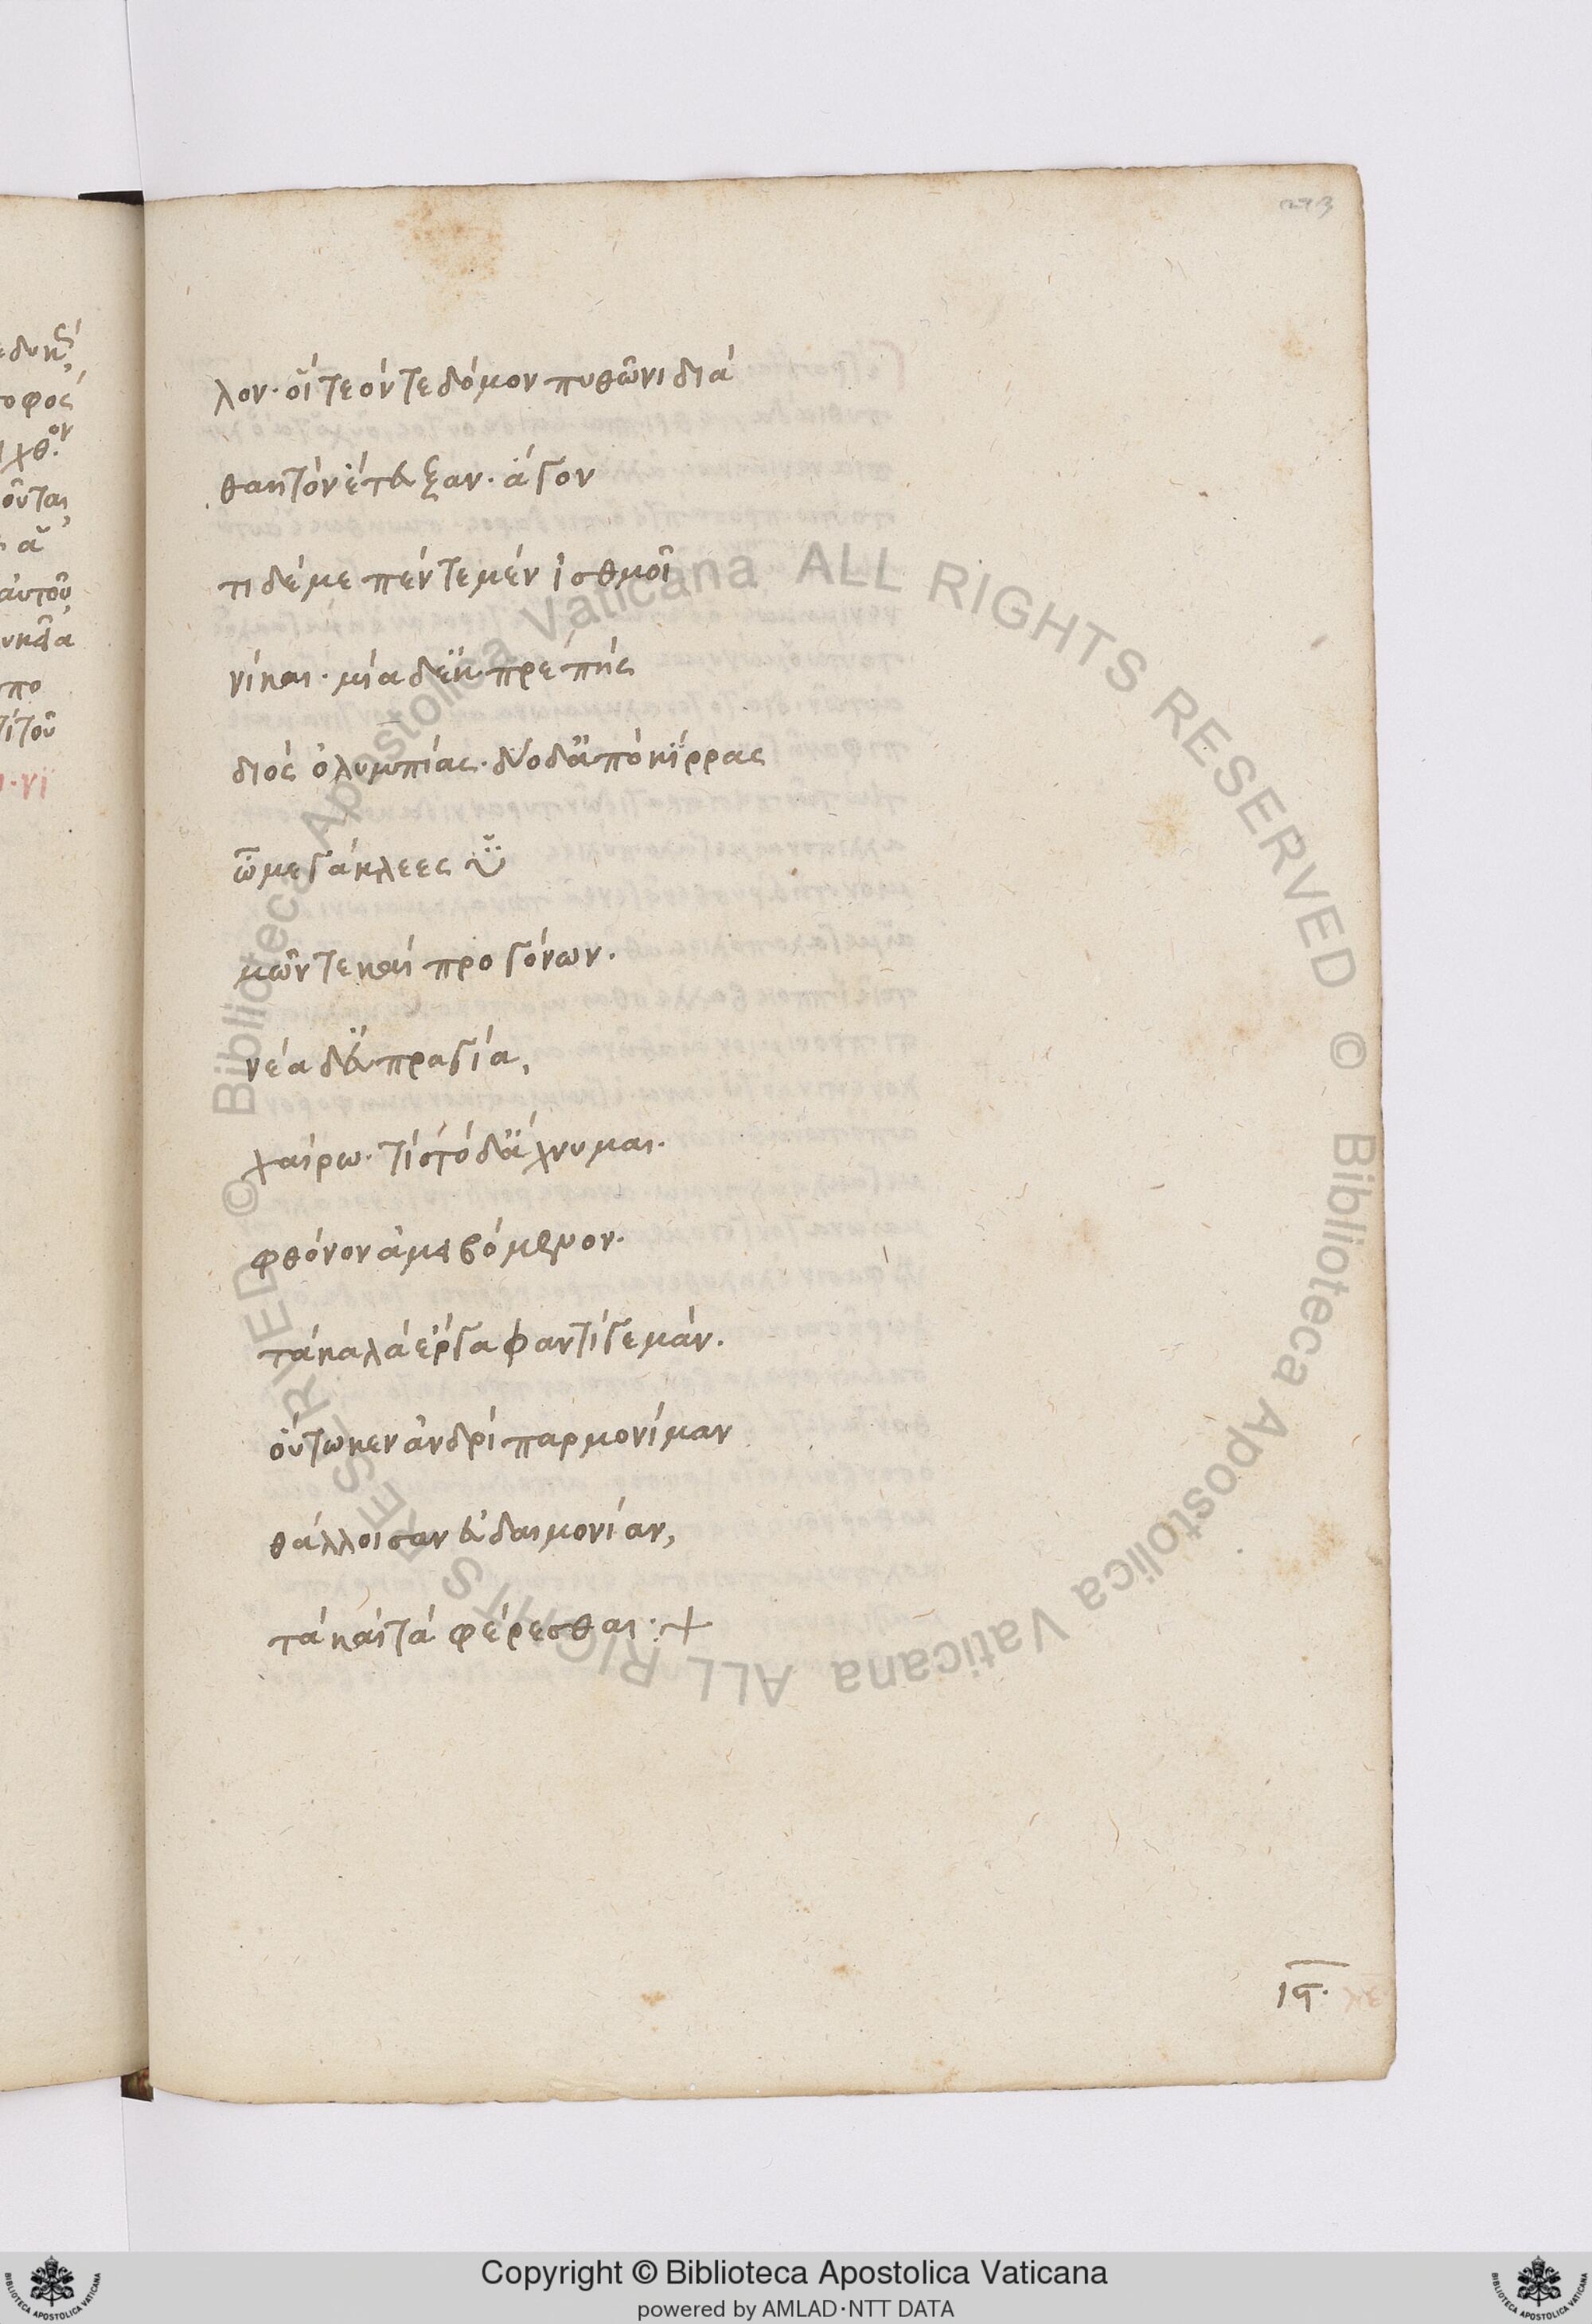 293
λον· οἵ τεόν τε δόμον πυθῶνι δία
θαητὸν ἔτευξαν· ἄγον
τι δέ με πέντε μὲν ἰσθμοῖ
νῖκαι· μία δ' ἐκπρεπὴς
διὸς ὀλυμπίας· δύο δ' ἀπὸ κίρρας
ὦ μεγάκλεες ὑ
μῶν τε καὶ προγόνων·
νέα δ' εὐπραγία,
χαίρω· τί στὸ δ' ἄχνυμαι·
φθόνον ἀμειβόμενον·
τὰ καλὰ ἔργα φαντί γε μάν·
οὕτω κεν ἀνδρὶ παρμονίμαν
θάλλοισαν εὐδαιμονίαν,
τὰ καὶ τὰ φέρεσθαι :+
ις·
Copyright © Biblioteca Apostolica Vaticana
powered by AMLAD·NTT DATA
© Biblioteca Apostolica Vaticana ALL RIGHTS RESERVED © Biblioteca Apostolica Vaticana ALL RIGHTS RESERVED